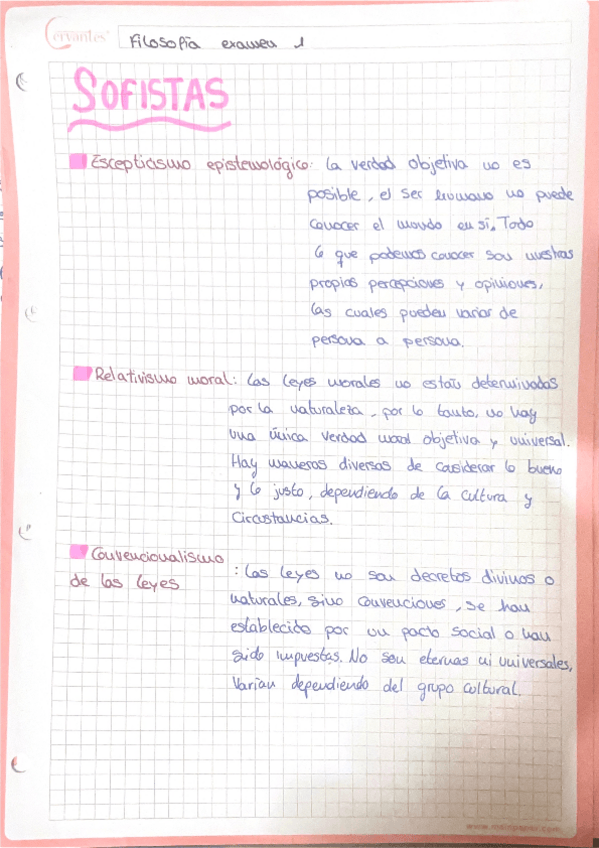 Cervantes
Filosofía examen 1
SOFISTAS
Escepticismo epistemológico: La verdad objetiva no es
posible, el ser humano no puede
conocer el mundo en sí. Todo
lo que podemos conocer son nuestras
propias percepciones y opiniones,
las cuales pueden variar de
persona a persona.
Relativismo moral: Las leyes morales no están determinadas
por la naturaleza, por lo tanto, no hay
una única verdad moral objetiva y universal.
Hay maneras diversas de considerar lo bueno
y lo justo, dependiendo de la cultura y
circustancias.
Convencionalismo
de las leyes
: Las leyes no son decretos divinos o
naturales, sino convenciones, se han
establecido por un pacto social o han
sido impuestas. No son eternas ni universales,
varian dependiendo del grupo cultural.